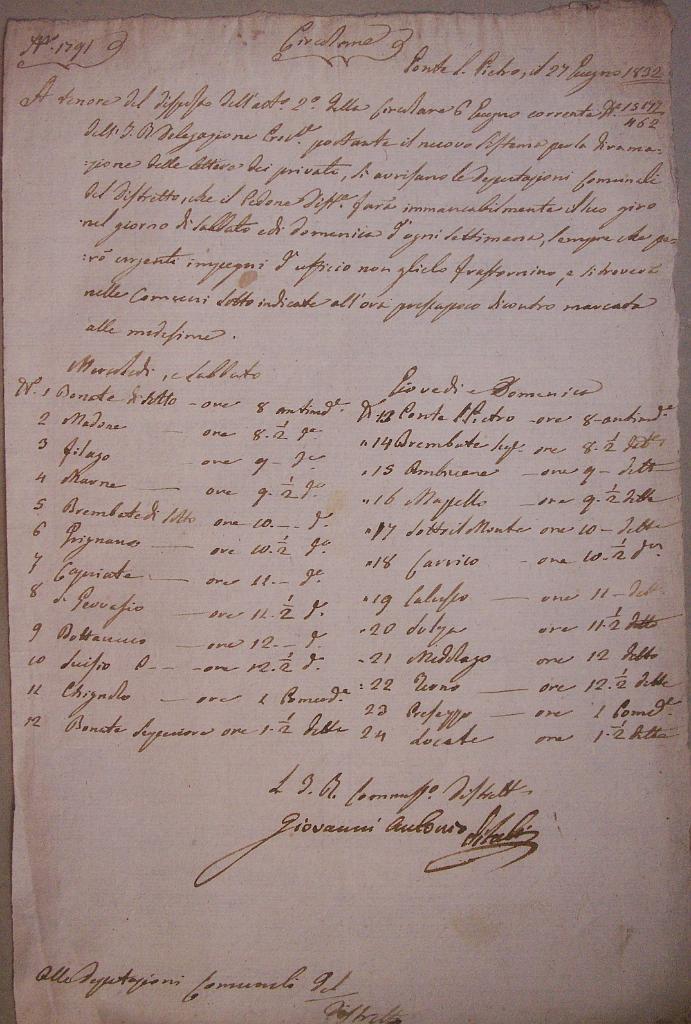 N°. 1791
Circolare
Ponte S. Pietro, il 27 Giugno 1832
A tenore del disposto dell'art.° 2.° della Circolare 6 Giugno corrente N.° 13517/462
dell'I. R. Delegazione Prov.le portante il nuovo sistema per la dirama-
:zione delle lettere dei privati, si avvisano le Deputazioni Comunali
del Distretto, che il Pedone Diss.le farà immancabilmente il suo giro
nel giorno di Sabbato e di domenica d'ogni settimana, sempre che pe-
:rò urgenti impegni d'ufficio non glielo frastornino, e si troverà
nelle Comuni sotto indicate all'ora pressapoco di contro marcata
alle medesime.
Mercoledì, e Sabbato
N°. 1 Bonate di sotto - ore 8 antimed.e
2 Madone ore 8 1/2 d.e
3 Filago ore 9 - d.e
4 Marne ore 9 1/2 d.e
5 Brembate di Sotto ore 10 - d.e
6 Grignano ore 10 1/2 d.e
7 Capriate ore 11 - d.e
8 S. Gervasio ore 11 1/2 d.e
9 Bottanuco ore 12 - d.e
10 Suisio ore 12 1/2 d.e
11 Chignolo ore 1 Pomerd.e
12 Bonate Superiore ore 1 1/2 dette
Giovedì e Domenica
N 13 Ponte S. Pietro ore 8 antimd.e
" 14 Brembate Sup. ore 8 1/2 dette
" 15 Ambivere ore 9 - dette
" 16 Mapello ore 9 1/2 dette
" 17 Sotto il Monte ore 10 - dette
" 18 Carvico ore 10 1/2 d.e
" 19 Calusco ore 11 - dette
" 20 Solza ore 11 1/2 dette
" 21 Medolago ore 12 dette
" 22 Terno ore 12 1/2 dette
23 Presezzo ore 1 Pomed.e
24 Locate ore 1 1/2 dette
L I. R. Commiss.o Distrett.
Giovanni Antonio
Alle Deputazioni Comunali del
Distretto